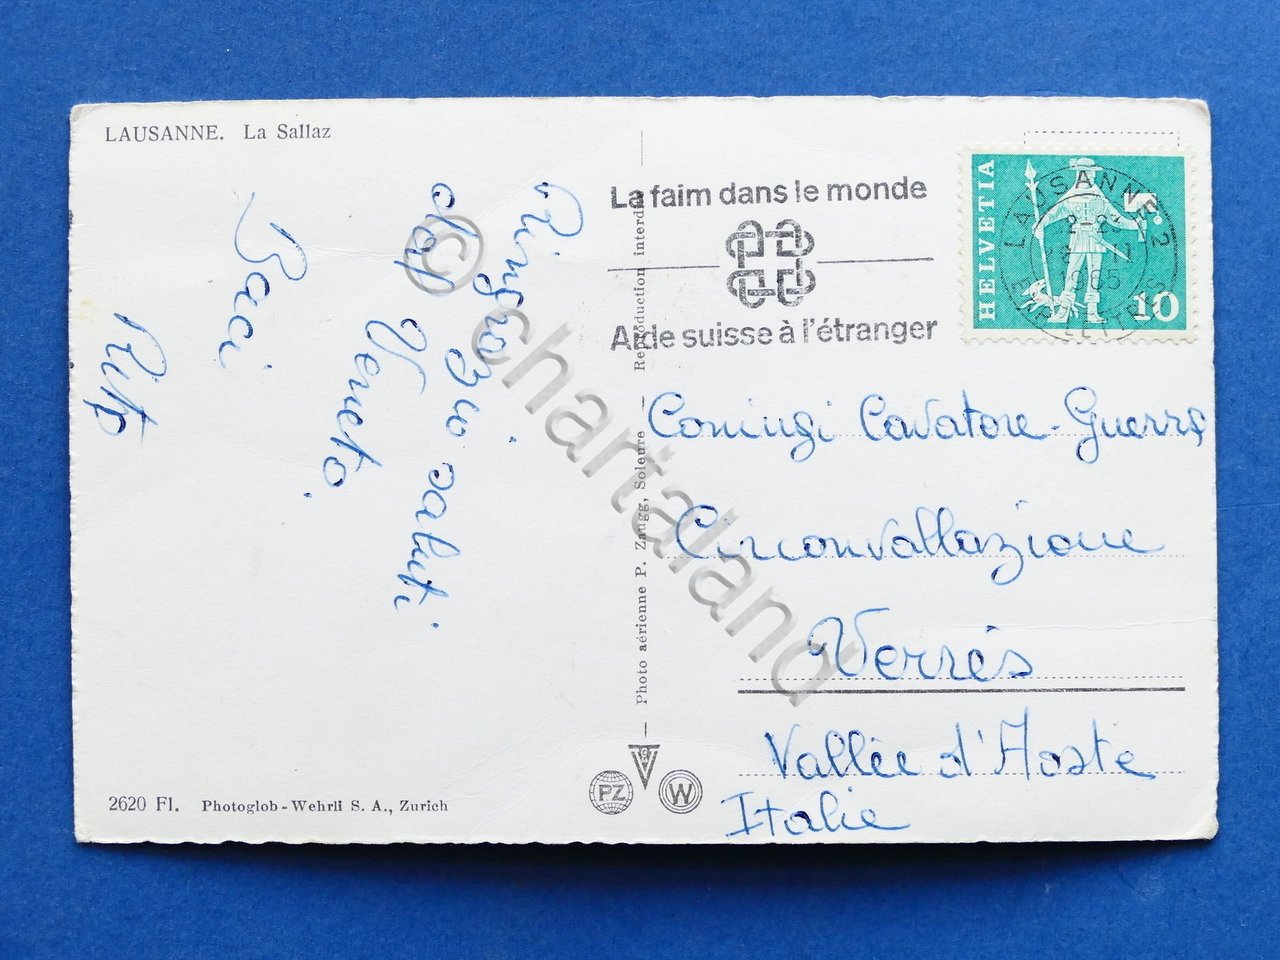 LAUSANNE. La Sallaz
Ringrazio saluti
dal Veneto.
Baci
Rita
2620 Fl. Photoglob-Wehrli S. A., Zurich
Photo aérienne P. Zaugg, Soleure — Reproduction interdite
PZ
W
La faim dans le monde
Aide suisse à l'étranger
HELVETIA
10
LAUSANNE 2
1965
EXP. LETTRES
Coniugi Cavatore-Guerra
Circonvallazione
Verrés
Vallée d'Aoste
Italie
© chartaland